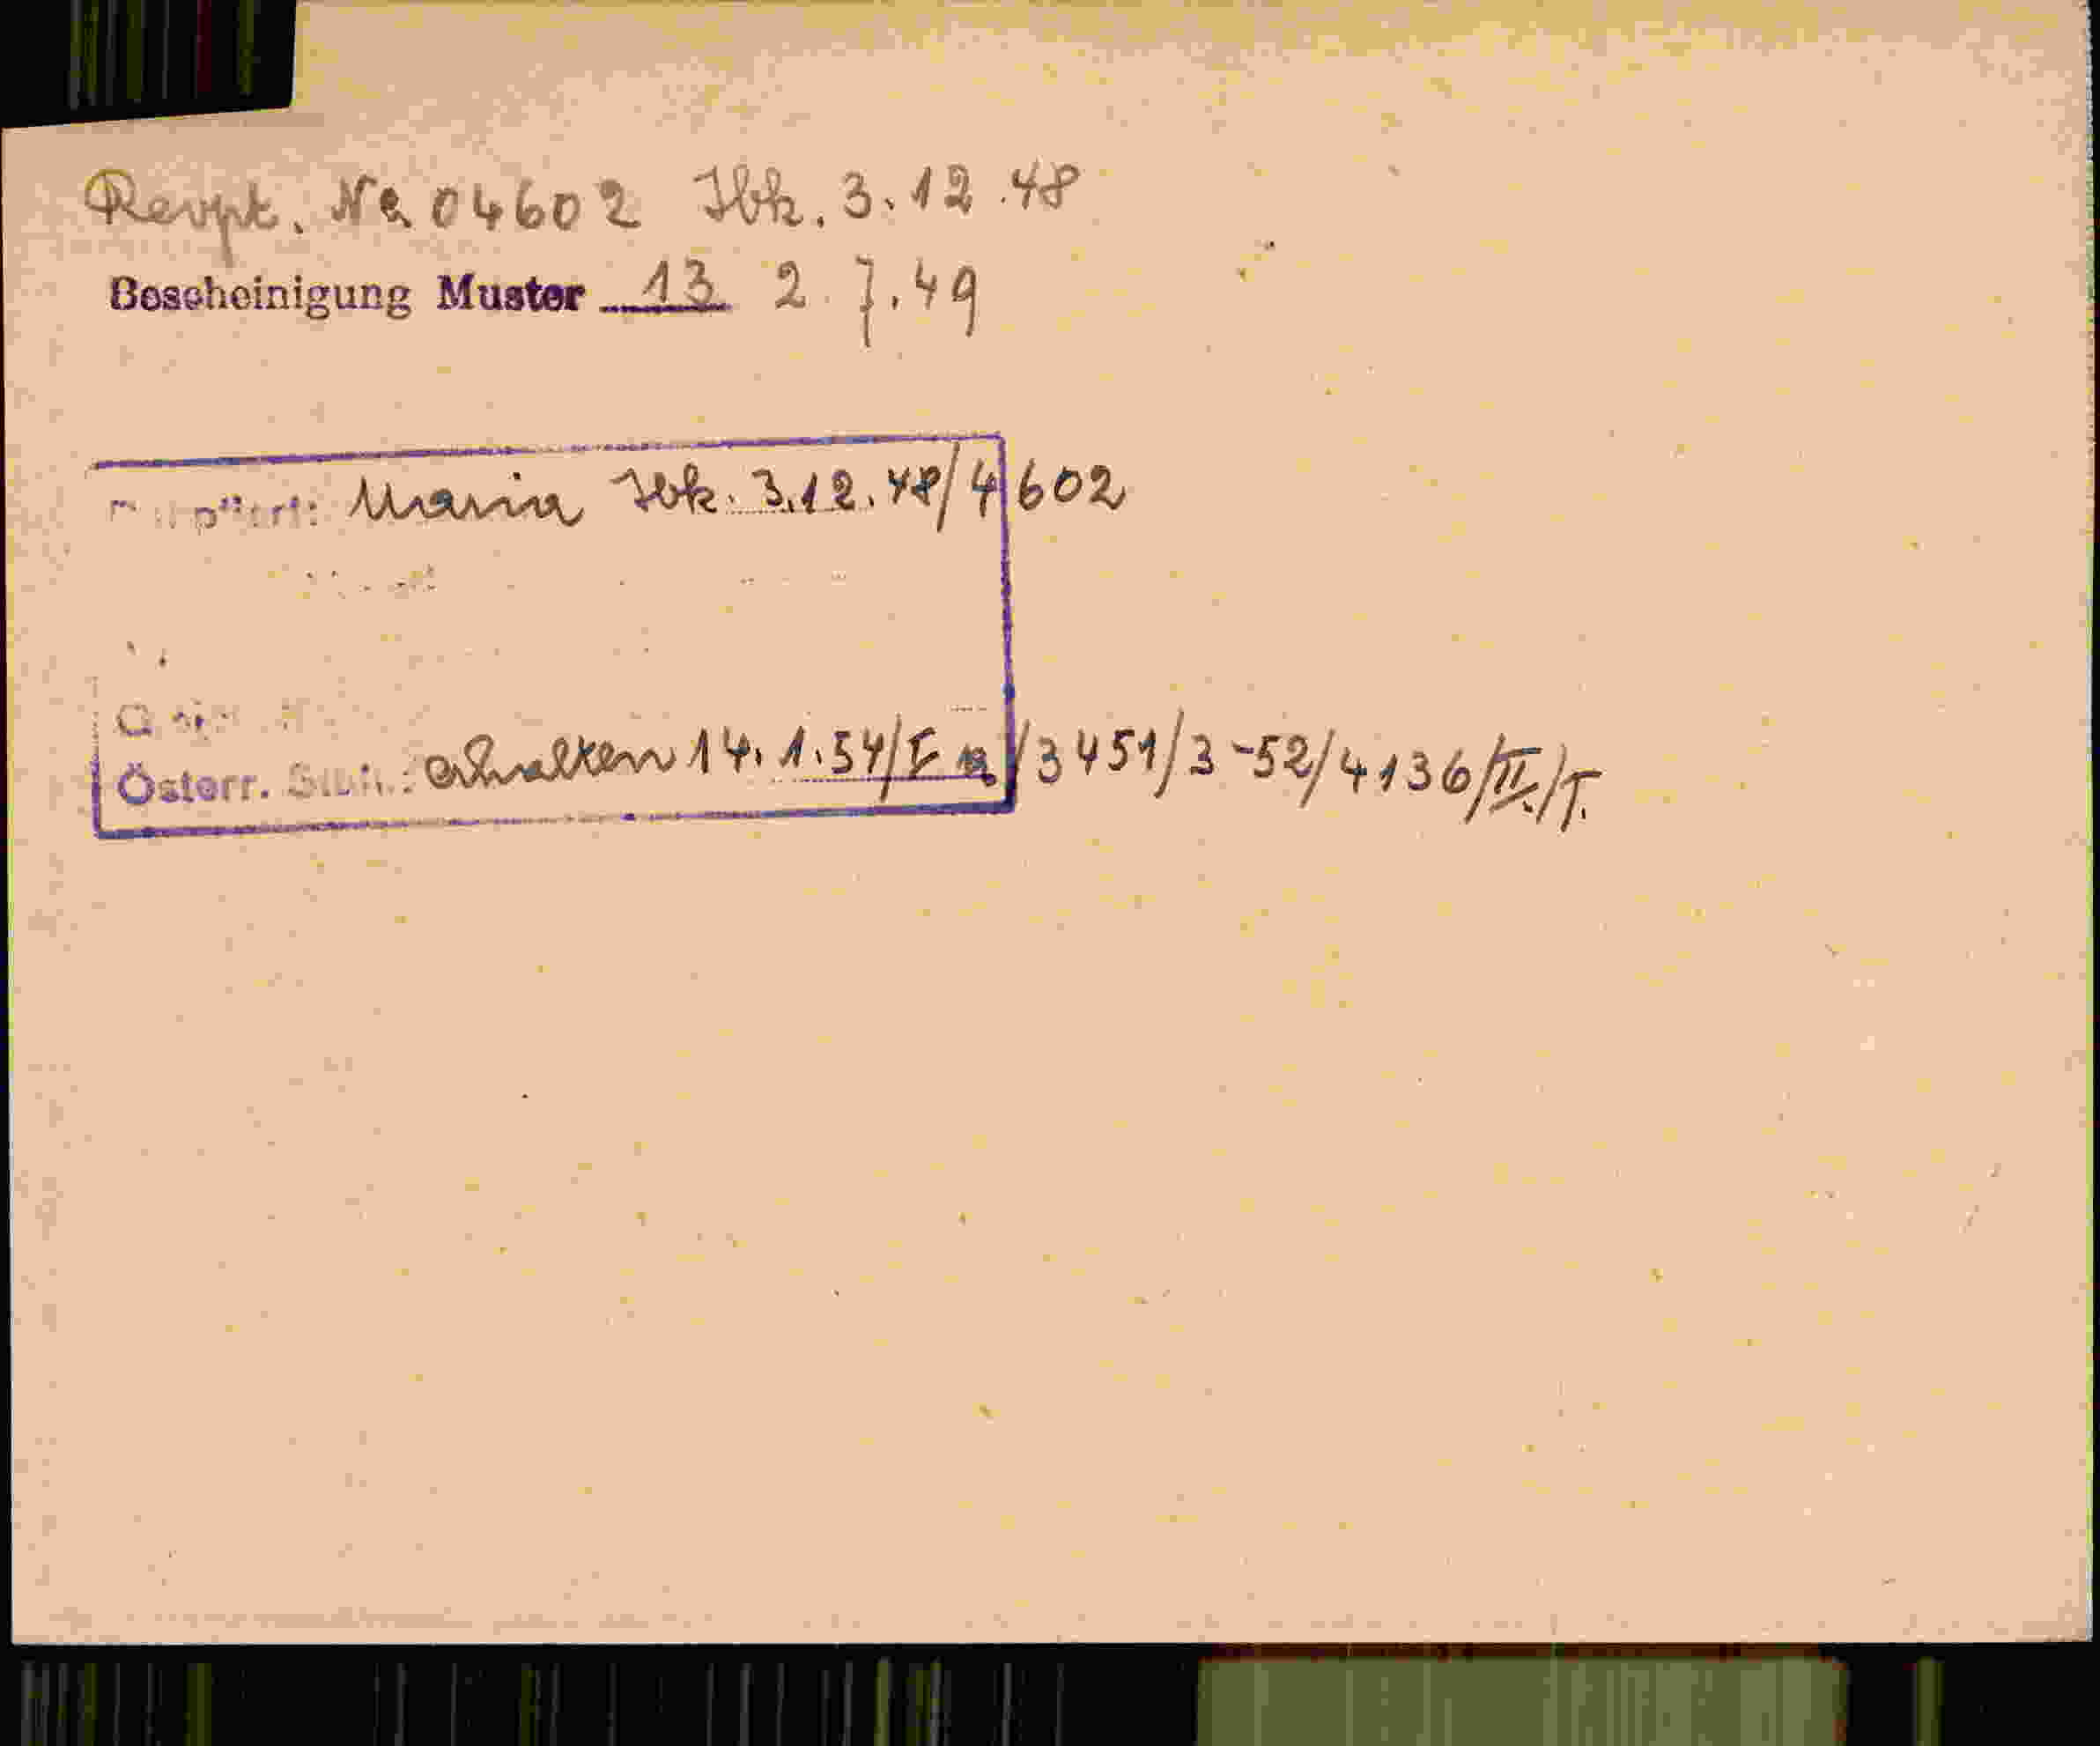 Revpt. No 04602 Ibk. 3.12.48
Bescheinigung Muster 13 2.7.49
Maria Ibk. 3.12.48/4602
Österr. Stbü.: erhalten 14.1.54/I a/3451/3-52/4136/II./T.